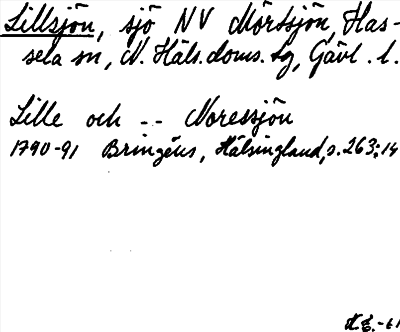 Lillsjön, sjö NV Mörtsjön, Has-
sela sn, N. Häls. doms. tg, Gävl. l.
Lille och -- Noressjön
1790-91 Bringéus, Hälsingland, s. 263:14
N.E. -61